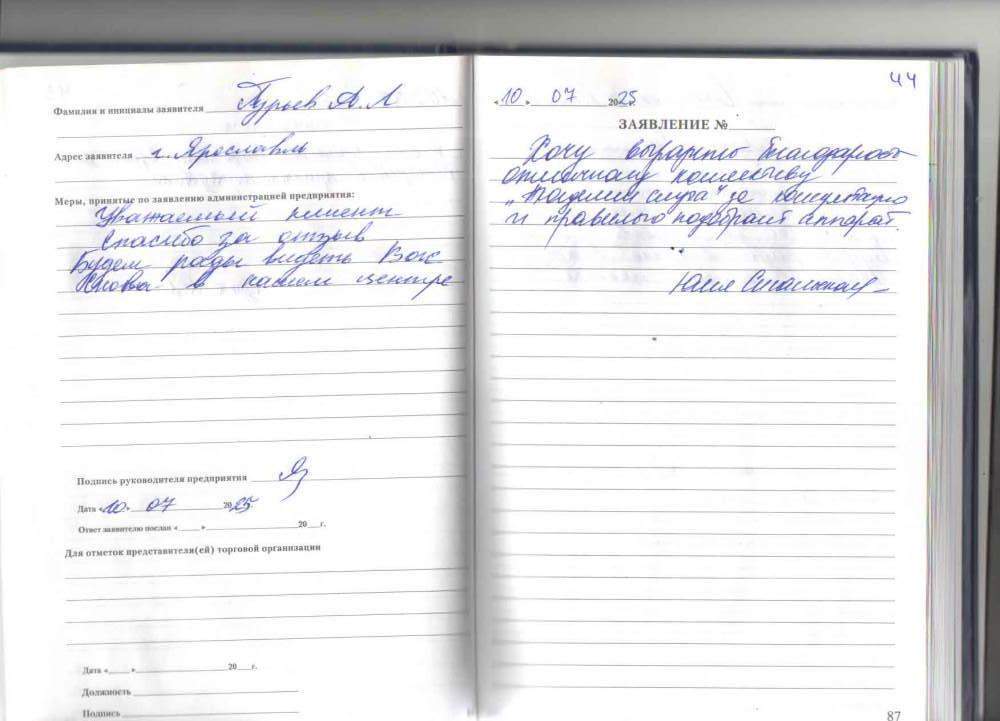 Фамилия и инициалы заявителя Гурьев А. Л
Адрес заявителя г. Ярославль
Меры, принятые по заявлению администрацией предприятия:
Уважаемый клиент
Спасибо за отзыв
Будем рады видеть Вас
снова в нашем центре
Подпись руководителя предприятия
Дата «10» 07 2025
Ответ заявителю послан «____» 20___г.
Для отметок представителя(ей) торговой организации
Дата «____» 20___г.
Должность
Подпись
44
«10» 07 2025г.
ЗАЯВЛЕНИЕ №
Хочу выразить благодарность
отличному коллективу
"Академии слуха" за консультацию
и правильно подобрант аппарат.
Юлия
87